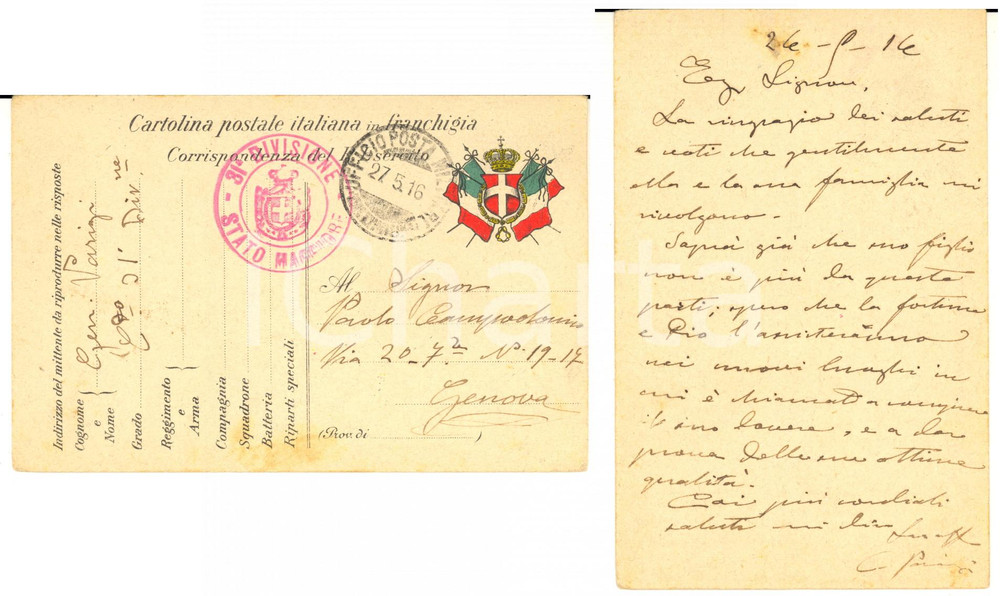 Cartolina postale italiana in franchigia
Corrispondenza del R. Esercito
DIVISIONE
STATO MAGGIORE
UFFICIO POSTA MILITARE
27.5.16
Indirizzo del mittente da riprodurre nelle risposte
Cognome e Nome
Grado
Reggimento e Arma
Compagnia
Squadrone
Batteria
Riparti speciali
Al Signor
Paolo
Via 20 - 7bre N° 19-17
Genova
(Prov. di )
iCharta
26 - 5 - 16
Egr Signore,
La ringrazio dei saluti
e voti che gentilmente
ella e la sua famiglia mi
rivolgono.
Saprà già che suo figlio
non è più da queste
parti; spero che la fortuna
e Dio l'assisteranno
nei nuovi luoghi in
cui è chiamato a compiere
il suo dovere, e a dar
prova delle sue ottime
qualità.
Coi più cordiali
saluti mi